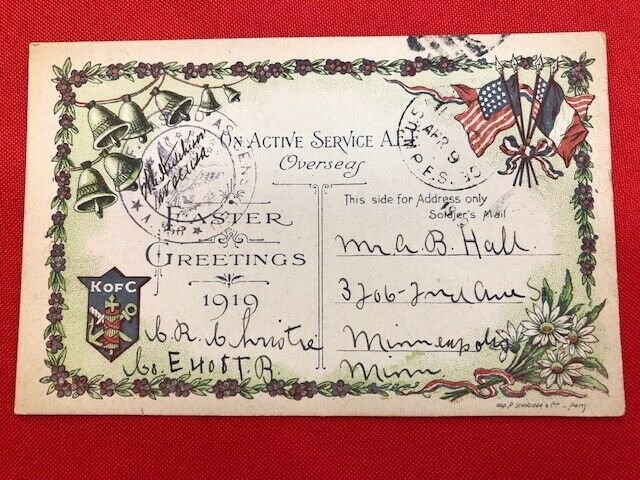 ON ACTIVE SERVICE A.E.F.
Overseas
This side for Address only
Soldier's Mail
EASTER
GREETINGS
1919
K OF C
U.S.
APR 9
P.E.S.
Mr A. B. Hall.
3206-2nd Ave S
Minneapolis
Minn.
C. R. Christie
Co. E 408 T B